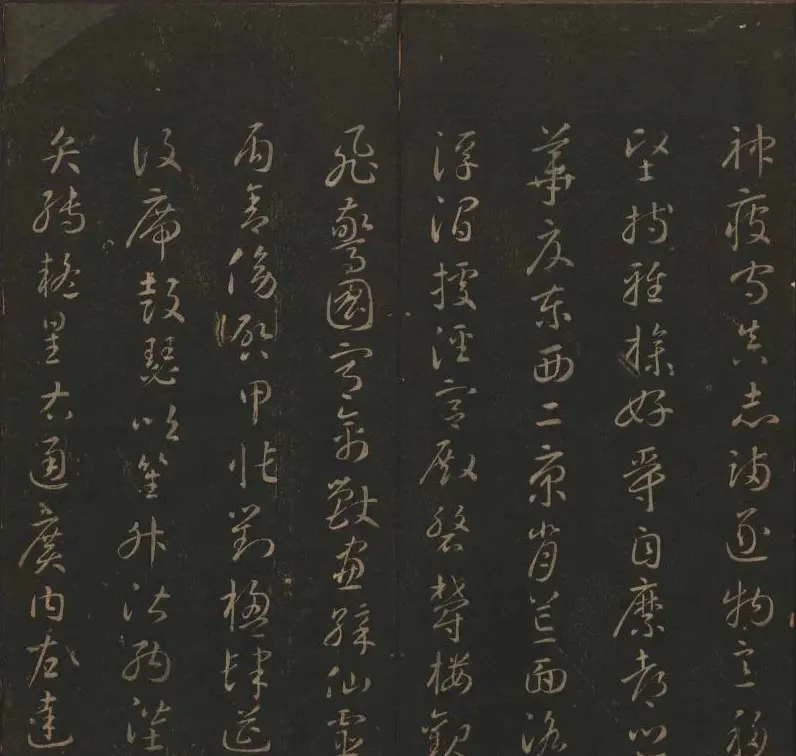 神疲守真志滿逐物意移
堅持雅操好爵自縻都邑
華夏東西二京背芒面洛
浮渭據涇宮殿盤鬱樓觀
飛驚圖寫禽獸畫綵仙靈
丙舍傍啟甲帳對楹肆筵
設席鼓瑟吹笙升階納陛
弁轉疑星右通廣內左達